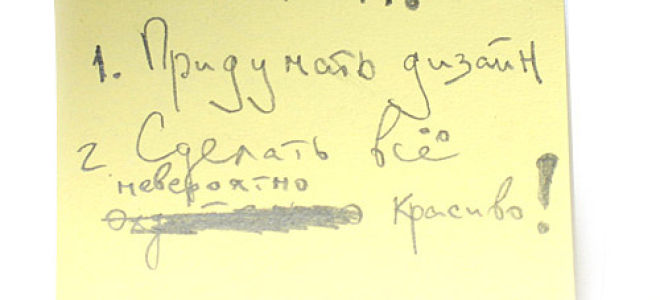 1. Придумать дизайн
2 Сделать всё
невероятно
красиво!